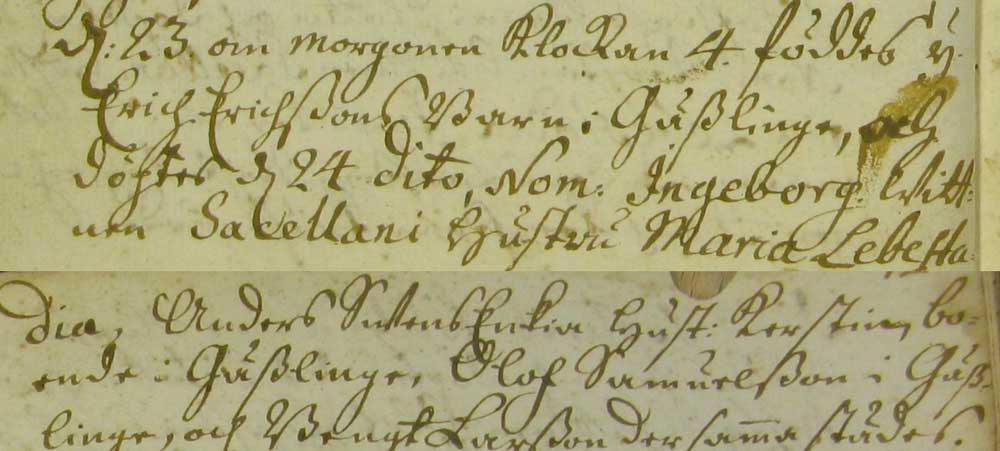 d. 23. om morgonen Klockan 4. föddes
Erich Erichßons Barn i Gåßlinge, och
döptes d 24 dito, Nom: Ingeborg. Witt-
nen Sacellani Hustru Maria Lebesta-
dia, Anders SwensEnkia Hust: Kerstin, bo-
ende i Gåßlinge, Olof Samuelßon i Gåß-
linge, och Bengt Larßon dersamma städes.